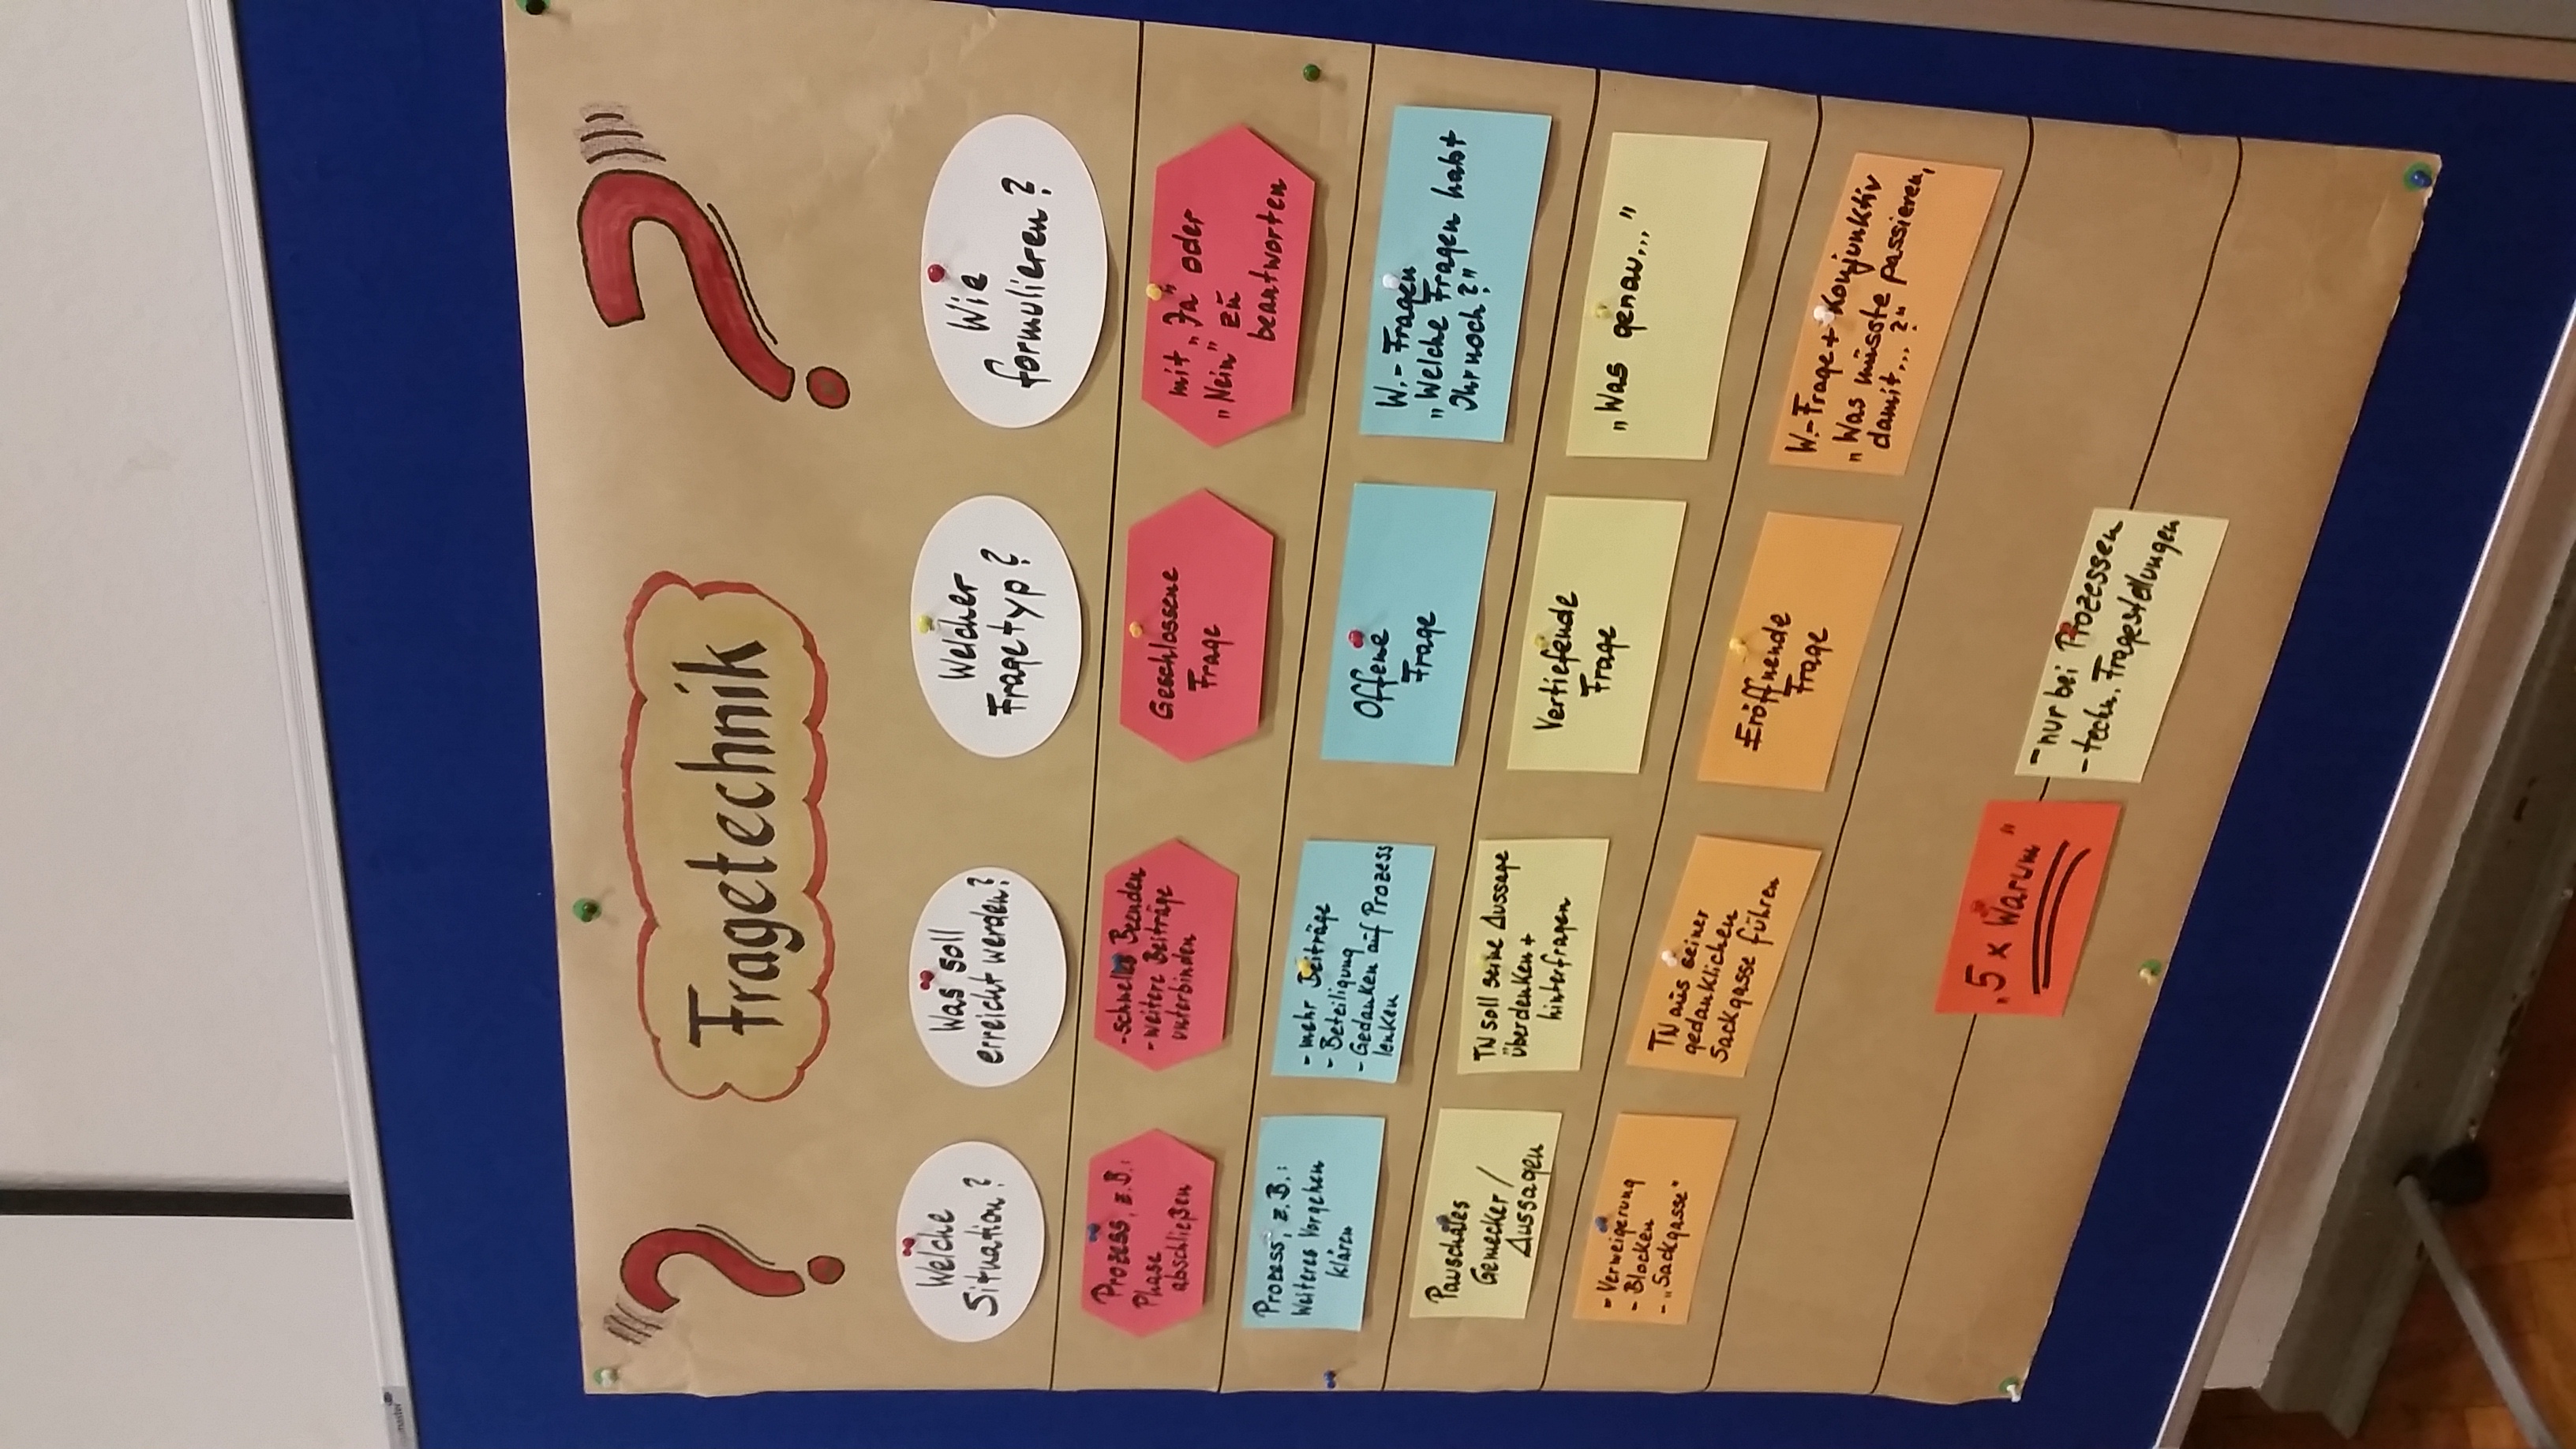 Fragetechnik
Welche
Situation?
Was soll
erreicht werden?
Welcher
Fragetyp?
Wie
formulieren?
Prozess, z.B.:
Phase
abschließen
- schnelles Beenden
- weitere Beiträge
unterbinden
Geschlossene
Frage
mit „Ja“ oder
„Nein“ zu
beantworten
Prozess, z.B.:
Weiteres Vorgehen
klären
- mehr Beiträge
- Beteiligung
- Gedanken auf Prozess
lenken
Offene
Frage
W.-Fragen
„Welche Fragen habt
Ihr noch?“
Pauschales
Gemecker/
Aussagen
TN soll seine Aussage
überdenken +
hinterfragen
Vertiefende
Frage
„Was genau...“
- Verweigerung
- Blocken
- „Sackgasse“
TN aus seiner
gedanklichen
Sackgasse führen
Eröffnende
Frage
W.-Frage + Konjunktiv
„Was müsste passieren,
damit...?“
„5 x Warum“
- nur bei Prozessen
- techn. Fragestellungen